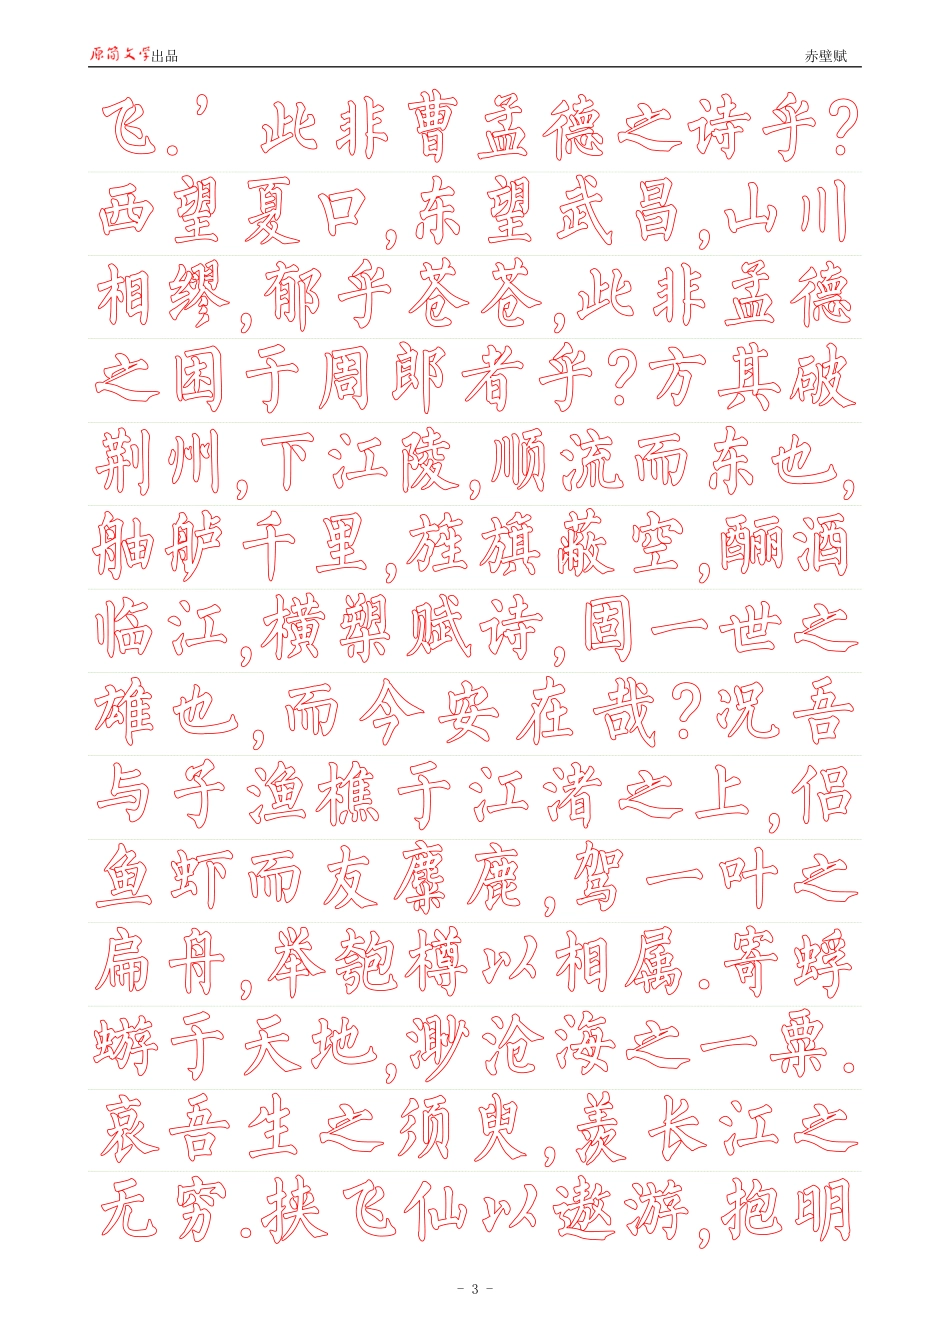 原简文学出品 赤壁赋
飞.’ 此非曹孟德之诗乎?
西望夏口,东望武昌,山川
相缪,郁乎苍苍,此非孟德
之困于周郎者乎?方其破
荆州,下江陵,顺流而东也,
舳舻千里,旌旗蔽空,酾酒
临江,横槊赋诗,固一世之
雄也,而今安在哉?况吾
与子渔樵于江渚之上,侣
鱼虾而友麋鹿,驾一叶之
扁舟,举匏樽以相属.寄蜉
蝣于天地,渺沧海之一粟.
哀吾生之须臾,羡长江之
无穷.挟飞仙以遨游,抱明
- 3 -